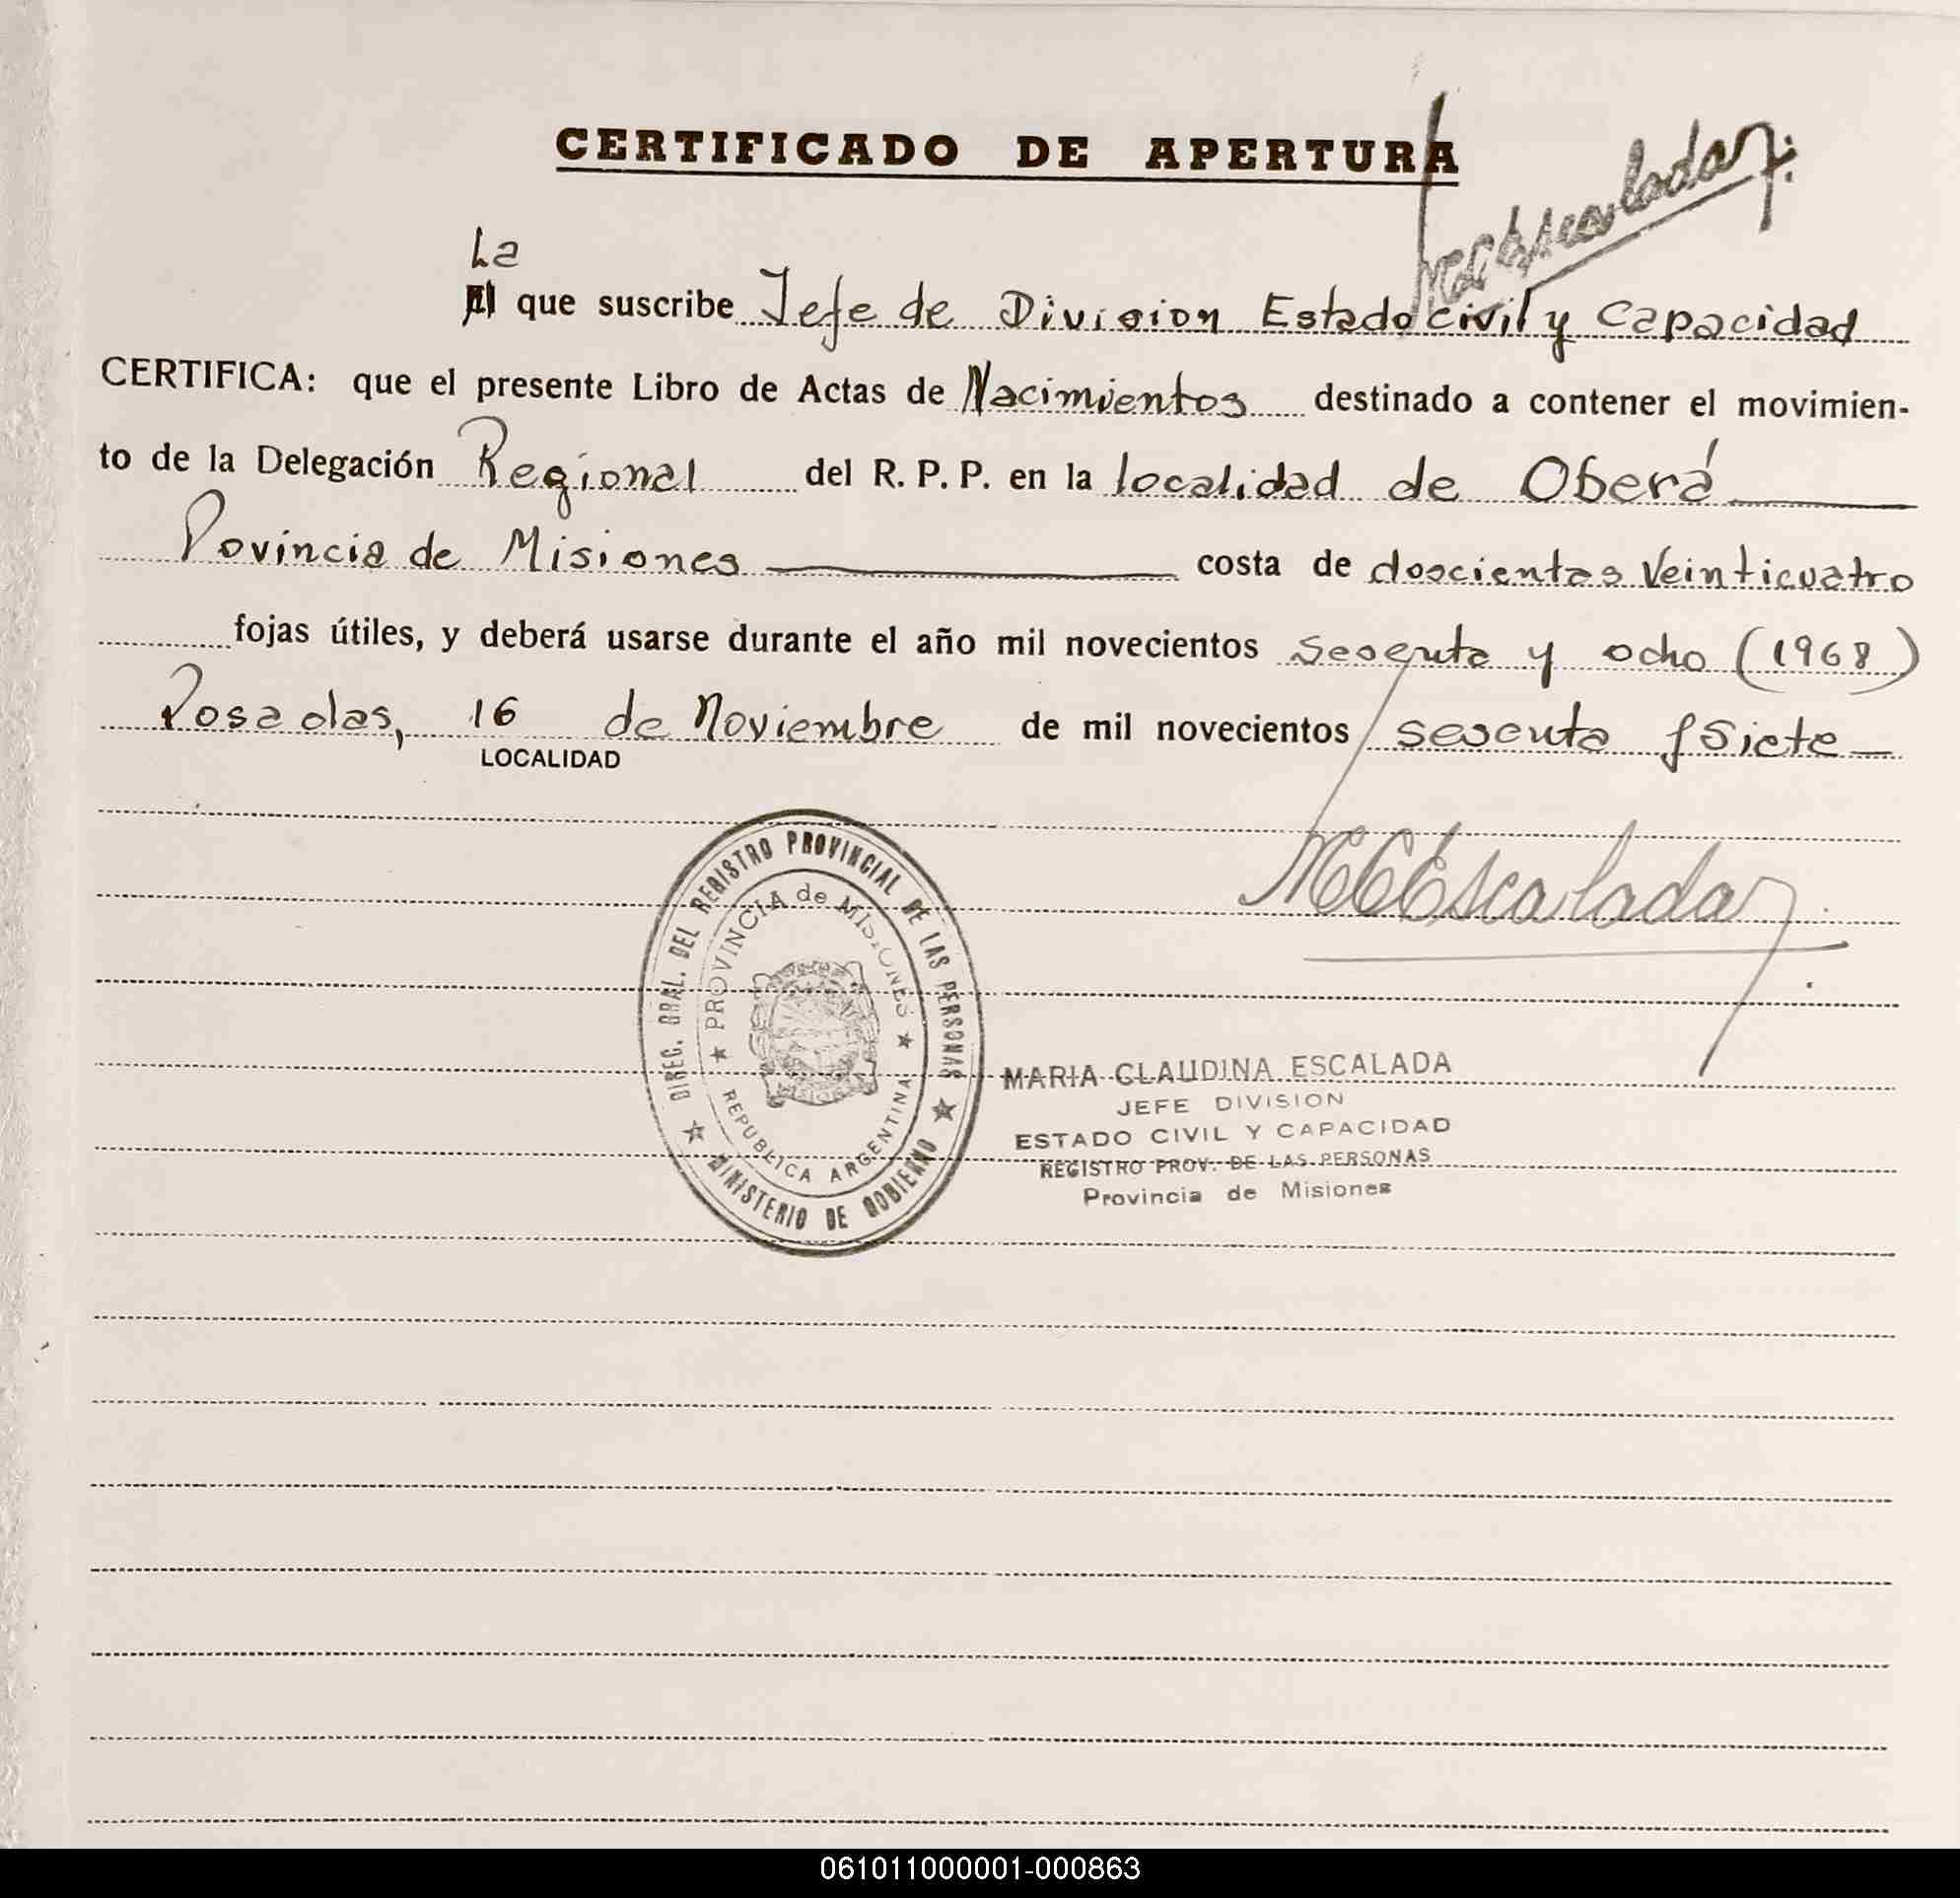 CERTIFICADO DE APERTURA
MCEscalada
La
El que suscribe Jefe de Division Estado civil y Capacidad
CERTIFICA: que el presente Libro de Actas de Nacimientos destinado a contener el movimien-
to de la Delegación Regional del R. P. P. en la localidad de Oberá
Provincia de Misiones costa de doscientas Veinticuatro
fojas útiles, y deberá usarse durante el año mil novecientos sesenta y ocho (1968)
Posadas, 16 de Noviembre de mil novecientos sesenta y Siete
LOCALIDAD
MCEscalada
DIREC. GRAL. DEL REGISTRO PROVINCIAL DE LAS PERSONAS
PROVINCIA de MISIONES
REPUBLICA ARGENTINA
MINISTERIO DE GOBIERNO
MARIA CLAUDINA ESCALADA
JEFE DIVISION
ESTADO CIVIL Y CAPACIDAD
REGISTRO PROV. DE LAS PERSONAS
Provincia de Misiones
061011000001-000863